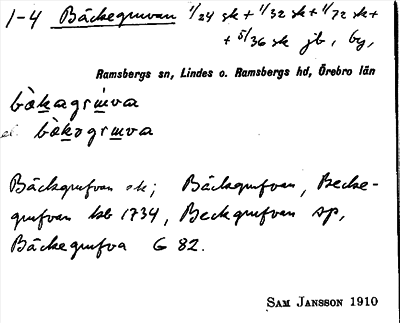 1-4 Bäckegruvan 1/24 sk + 1/32 sk + 1/72 sk +
+ 5/36 sk jb, by,
Ramsbergs sn, Lindes o. Ramsbergs hd, Örebro län
bòkagrụva
el. bòkogrụva
Bäcksgrufvan sk; Bäcksgrufvan, Becke-
grufvan kb 1734, Beckgrufvan sp,
Bäckegrufva G 82.
SAM JANSSON 1910